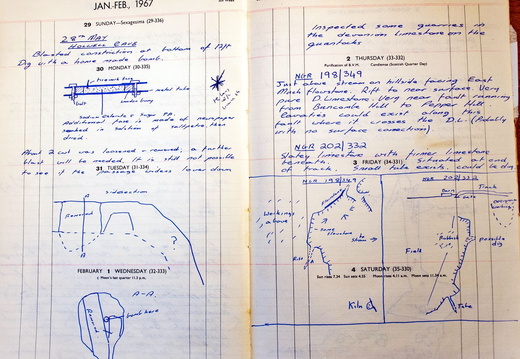 JAN.-FEB., 1967
29 SUNDAY—Sexagesima (29-336)
28TH MAY
HOLWELL CAVE
Blasted constrictions at bottom of 12ft
Dig with a home made bomb.
30 MONDAY (30-335)
metal tube
bolt
Sodium Chlorate & Sugar
Additional
of newspaper
soaked in solution of saltpetre, then
dried.
About 2 cwt was loosened & removed, a further
blast will be needed. It is still not possible
to see if the passage widens lower down
31 TUESDAY (31-334)
side section
A
Removed
?
A
FEBRUARY 1 WEDNESDAY (32-333)
Moon's last quarter 11.3 p.m.
A-A.
Removed
bomb here
Inspected some quarries in
the devonian limestone on the
quantocks
2 THURSDAY (33-332)
Purification of B.V.M. Candlemas (Scottish Quarter Day)
NGR 198/349
Just above stream on hillside facing East
Much flowstone. Rift to near surface. Very
pure D. Limestone. Very near fault running
from Bencombe Hill to Pepper Hill.
Cavaties could exist along this
fault where it crosses the D.L. (Adally
with no surface connection)
NGR 202/332
Slatey limestone with firmer limestone
Situated at end
of track. Small tube exists could be dig.
3 FRIDAY (34-331)
NGR 198/349
NGR 202/332
Workings
above
some
flowstone
to
stream
Rift
Barn
Track
Gate
Rubbish
possible
dig
Field
Tube
4 SATURDAY (35-330)
Sun rises 7.34 Sun sets 4.55 Moon rises 4.11 a.m. Moon sets 11.34 a.m.
Kiln